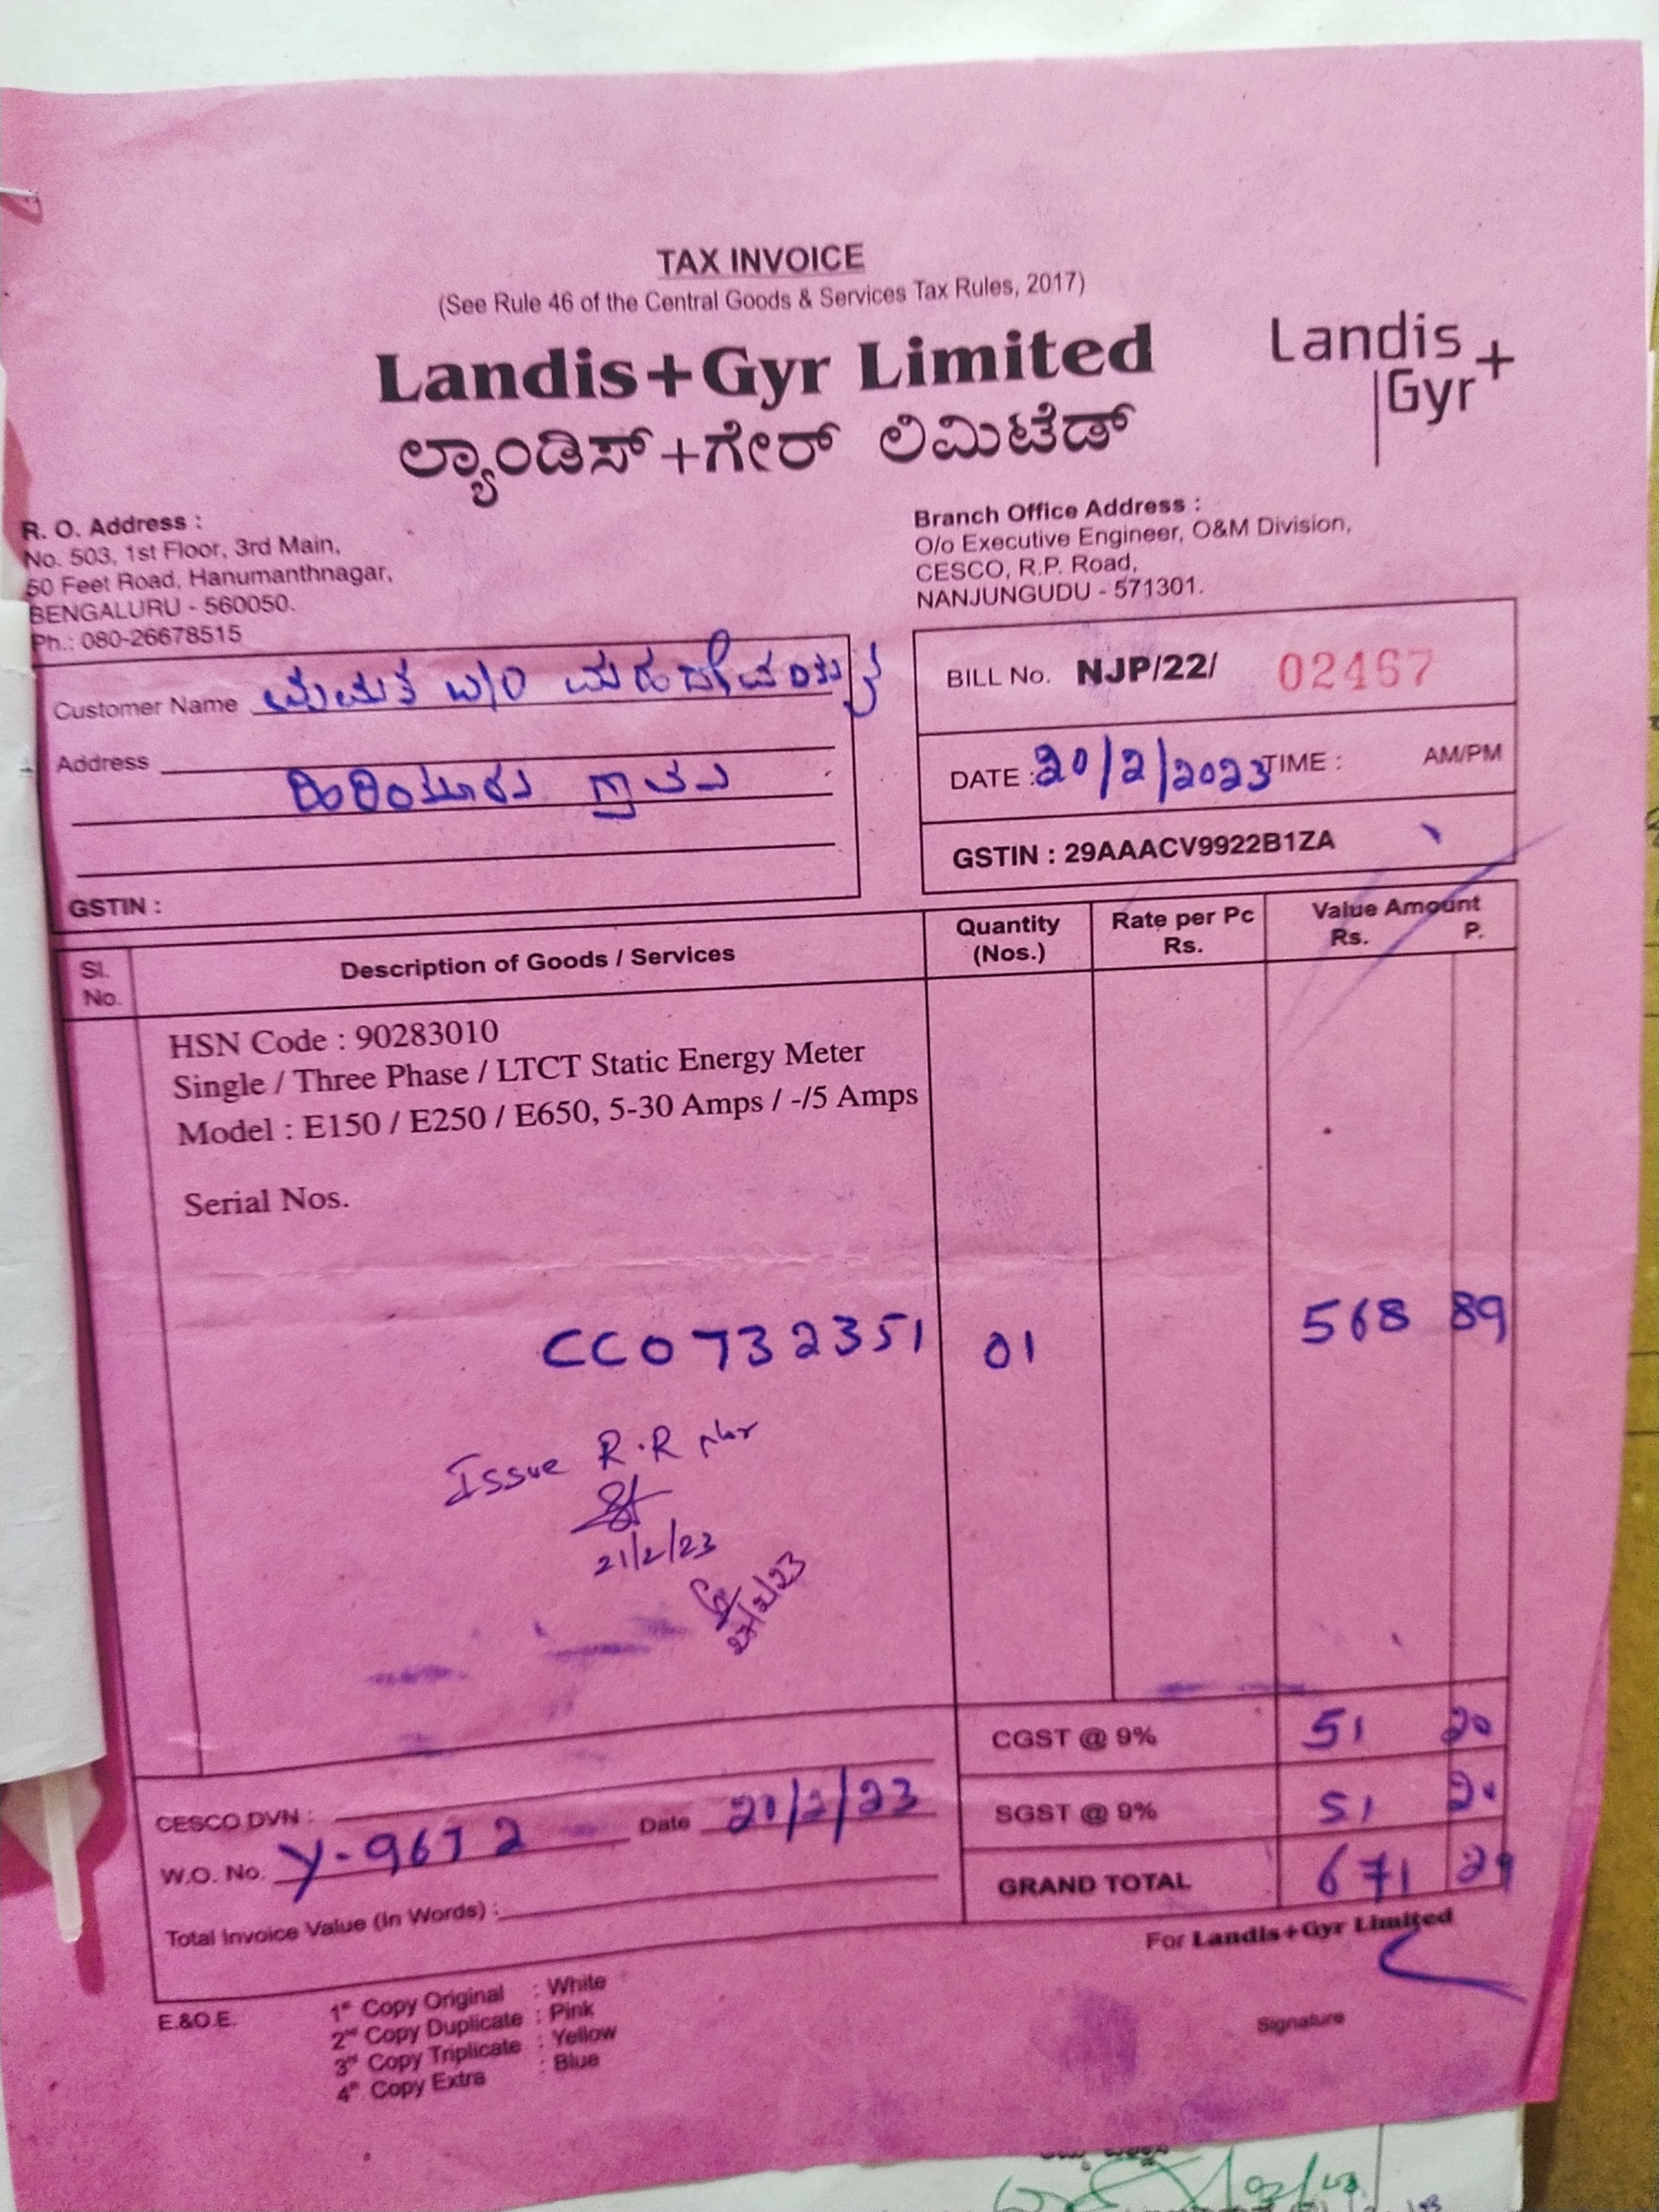 TAX INVOICE
(See Rule 46 of the Central Goods & Services Tax Rules, 2017)
Landis+Gyr Limited
ಲ್ಯಾಂಡಿಸ್+ಗೇರ್ ಲಿಮಿಟೆಡ್
Landis
Gyr+
R. O. Address :
No. 503, 1st Floor, 3rd Main,
50 Feet Road, Hanumanthnagar,
BENGALURU - 560050.
Ph.: 080-26678515
Branch Office Address :
O/o Executive Engineer, O&M Division,
CESCO, R.P. Road,
NANJUNGUDU - 571301.
Customer Name ಮಮತ W/O
Address
ಗ್ರಾಮ
GSTIN :
BILL No. NJP/22/ 02467
DATE : 20/2/2023 TIME : AM/PM
GSTIN : 29AAACV9922B1ZA
Sl. No. Description of Goods / Services Quantity (Nos.) Rate per Pc Rs. Value Amount Rs. P.
HSN Code : 90283010
Single / Three Phase / LTCT Static Energy Meter
Model : E150 / E250 / E650, 5-30 Amps / -/5 Amps
Serial Nos.
CC0732351 01 568 89
Issue R.R
21/2/23
27/2/23
CGST @ 9% 51 20
SGST @ 9% 51 20
GRAND TOTAL 671 29
CESCO DVN :
W.O. No. Y-9672 Date 20/2/23
Total Invoice Value (In Words) :
For Landis+Gyr Limited
Signature
E.&O.E.
1st Copy Original : White
2nd Copy Duplicate : Pink
3rd Copy Triplicate : Yellow
4th Copy Extra : Blue